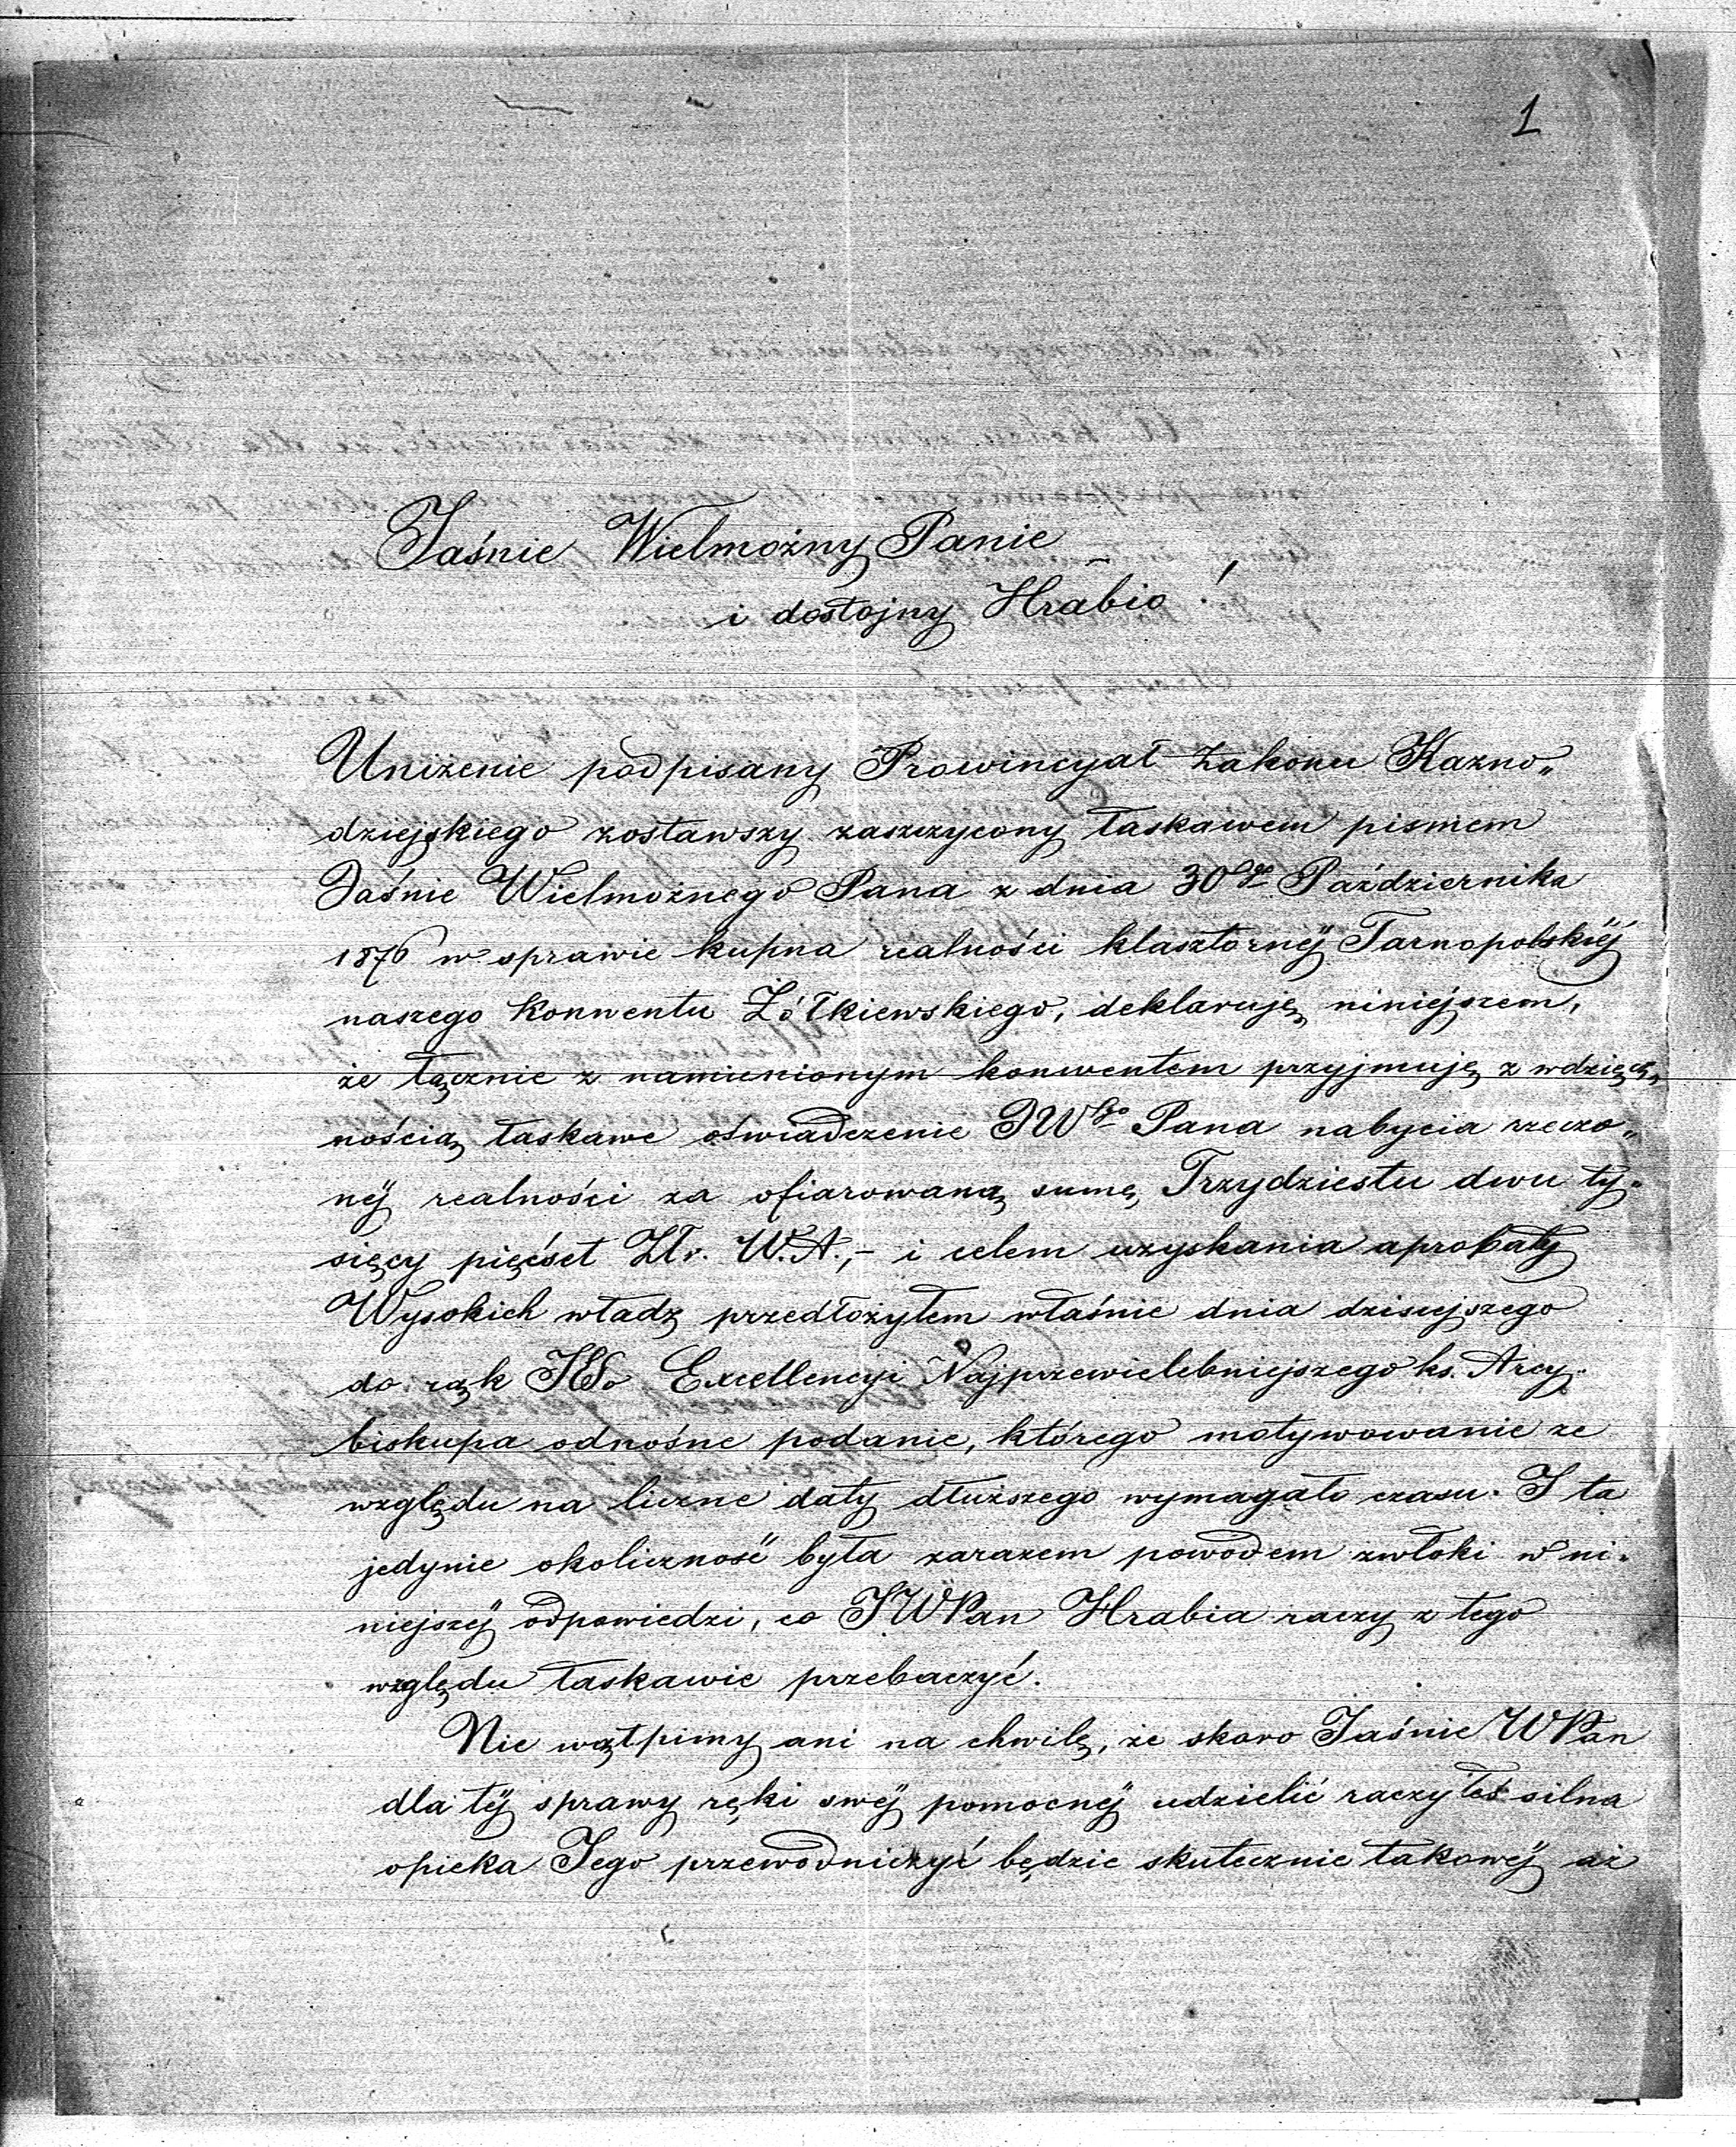 1
Jaśnie Wielmożny Panie
i dostojny Hrabio!
Uniżenie podpisany Prowincyał Zakonu Kazno„
dziejskiego zostawszy zaszczycony łaskawem pismem
Jaśnie Wielmożnego Pana z dnia 30go Października
1876 w sprawie kupna realności klasztornéj Tarnopolskiéj
naszego Konwentu Żółkiewskiego, deklaruję niniejszem,
że łącznie z namienionym konwentem przyjmuję z wdzięcz„
nością łaskawe oświadczenie JWgo Pana nabycia rzeczo„
néj realności za ofiarowaną sumę Trzydziestu dwu ty-
sięcy pięćset Złr. W.A.,- i celem uzyskania aprobaty
Wysokich władz przedłożyłem właśnie dnia dzisiejszego
do rąk JEgo Excellencyi Najprzewielebniejszego ks. Arcy-
biskupa odnośne podanie, którego motywowanie ze
względu na liczne daty dłuższego wymagało czasu. I ta
jedynie okoliczność była zarazem powodem zwłoki w ni-
niejszéj odpowiedzi, co JWPan Hrabia raczy z tego
względu łaskawie przebaczyć.
Nie wątpimy ani na chwilę, że skoro Jaśnie WPan
dla téj sprawy ręki swéj pomocnéj udzielić raczyłeś silna
opieka Jego przewodniczyć będzie skutecznie takowéj aż